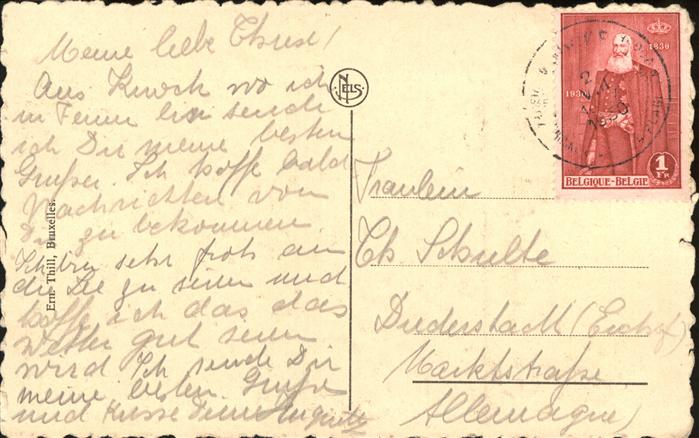 Meine liebe Thresl!
Aus Knock wo ich
in Ferien bin sende
ich Dir meine besten
Grüße. Ich hoffe bald
Nachrichten von
Dir zu bekommen.
Ich bin sehr froh an
die See zu sein und
hoffe ich das das
Wetter gut sein
wird Ich sende Dir
meine besten Grüße
und Küsse Deine Auguste
Ern. Thill, Bruxelles.
NELS
1830
1930
1 Fr
BELGIQUE-BELGIE
Fräulein
Th Schulte
Duderstadt (Eichsf)
Marktstraße
Allemagne